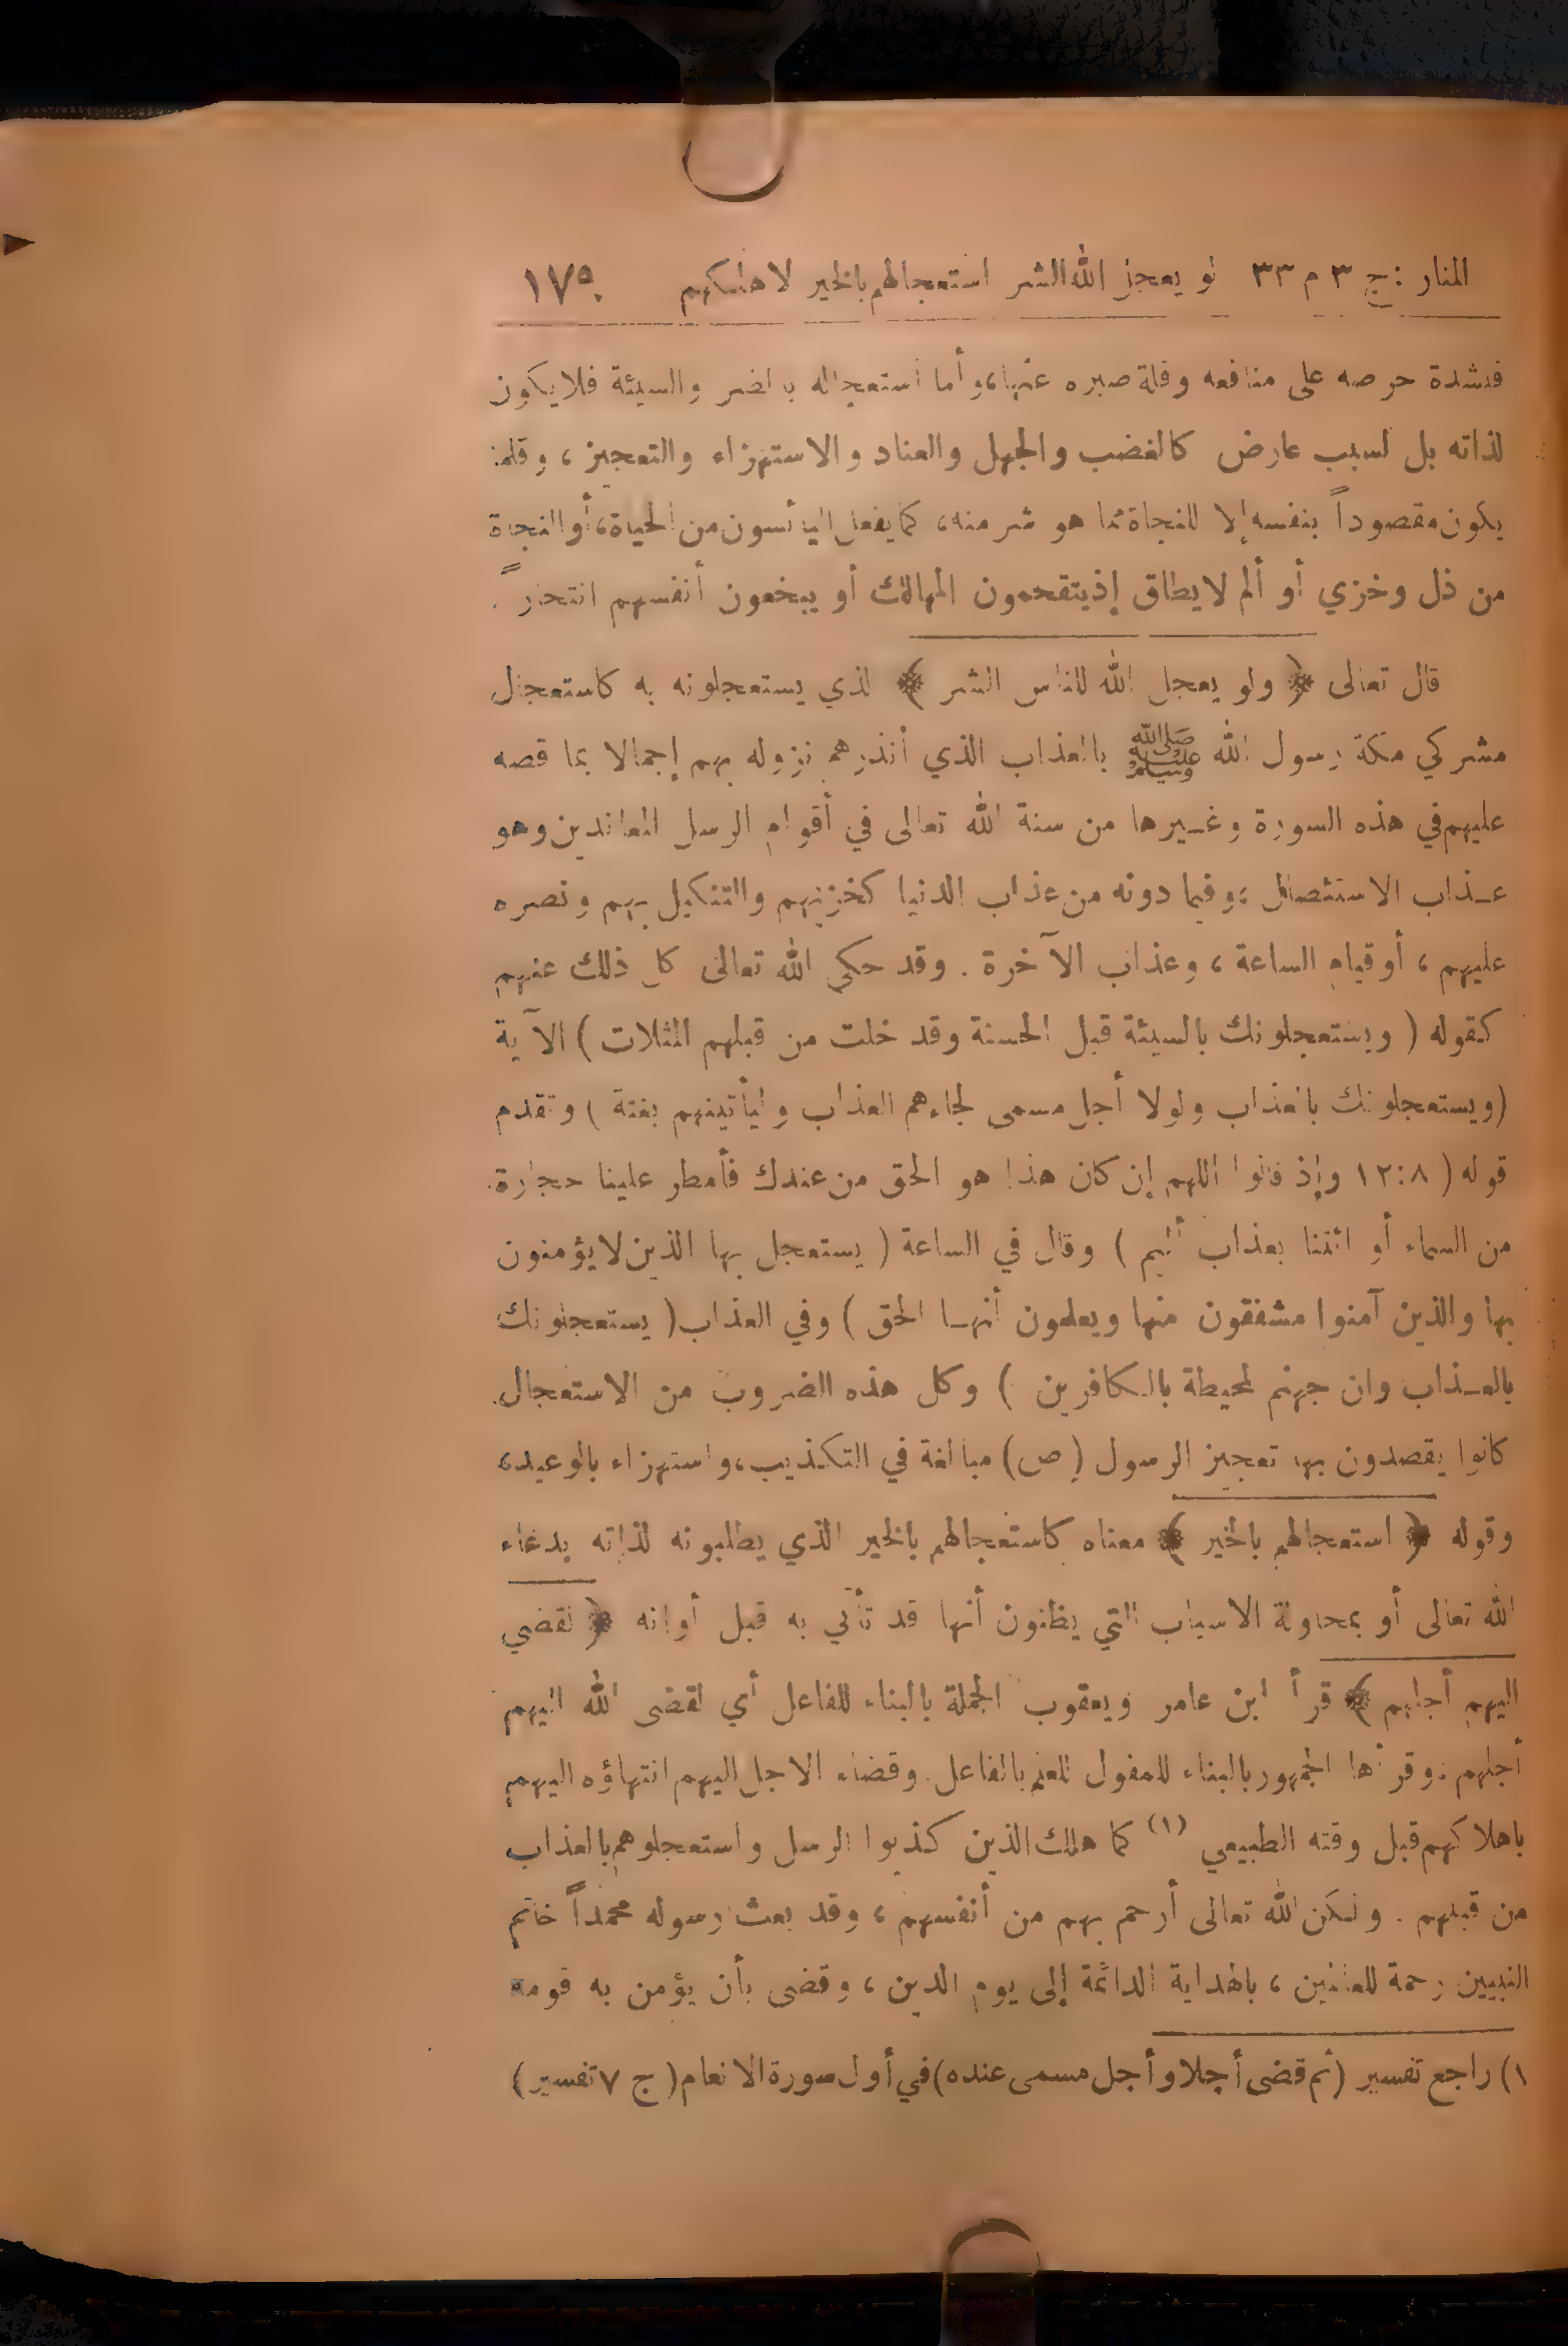 المنار : ج ٣ م ٣٣ لو يعجل الله الشر استعجالهم بالخير لاهلكهم ١٧٥
فلشدة حرصه على منافعه وقلة صبره عنها، وأما استعجاله بالضر والسيئة فلا يكون
لذاته بل لسبب عارض كالغضب والجهل والعناد والاستهزاء والتعجيز ، وقلما
يكون مقصوداً بنفسه إلا للنجاة مما هو شر منه، كما يفعل اليائسون من الحياة، أو النجاة
من ذل وخزي أو ألم لا يطاق إذ يتقحمون المهالك أو يبخعون أنفسهم انتحاراً .
قال تعالى ﴿ ولو يعجل الله للناس الشر ﴾ الذي يستعجلونه به كاستعجال
مشركي مكة رسول الله ﷺ بالعذاب الذي أنذرهم نزوله بهم إجمالا بما قصه
عليهم في هذه السورة وغيرها من سنة الله تعالى في أقوام الرسل المعاندين وهو
عذاب الاستئصال ، وفيما دونه من عذاب الدنيا كخزيهم والتنكيل بهم ونصره
عليهم ، أو قيام الساعة ، وعذاب الآخرة . وقد حكى الله تعالى كل ذلك عنهم
كقوله ( ويستعجلونك بالسيئة قبل الحسنة وقد خلت من قبلهم المثلات ) الآية
(ويستعجلونك بالعذاب ولولا أجل مسمى لجاءهم العذاب وليأتينهم بغتة ) وتقدم
قوله ( ٨ : ١٢ وإذ قالوا اللهم إن كان هذا هو الحق من عندك فأمطر علينا حجارة
من السماء أو ائتنا بعذاب أليم ) وقال في الساعة ( يستعجل بها الذين لا يؤمنون
بها والذين آمنوا مشفقون منها ويعلمون أنها الحق ) وفي العذاب ( يستعجلونك
بالعذاب وان جهنم لمحيطة بالكافرين ) وكل هذه الضروب من الاستعجال
كانوا يقصدون بها تعجيز الرسول (ص) مبالغة في التكذيب، واستهزاء بالوعيد،
وقوله ﴿ استعجالهم بالخير ﴾ معناه كاستعجالهم بالخير الذي يطلبونه لذاته بدعاء
الله تعالى أو بمحاولة الاسباب التي يظنون أنها قد تأتي به قبل أوانه ﴿ لقضي
اليهم أجلهم ﴾ قرأ ابن عامر ويعقوب الجملة بالبناء للفاعل أي لقضى الله اليهم
أجلهم . وقرأها الجمهور بالبناء للمفعول للعلم بالفاعل. وقضاء الاجل اليهم انتهاؤه اليهم
باهلاكهم قبل وقته الطبيعي (١) كما هلك الذين كذبوا الرسل واستعجلوهم بالعذاب
من قبلهم . ولكن الله تعالى أرحم بهم من أنفسهم ، وقد بعث رسوله محمداً خاتم
النبيين رحمة للعالمين ، بالهداية الدائمة إلى يوم الدين ، وقضى بأن يؤمن به قومه
١) راجع تفسير (ثم قضى أجلا وأجل مسمى عنده) في أول سورة الانعام ( ج ٧ تفسير )